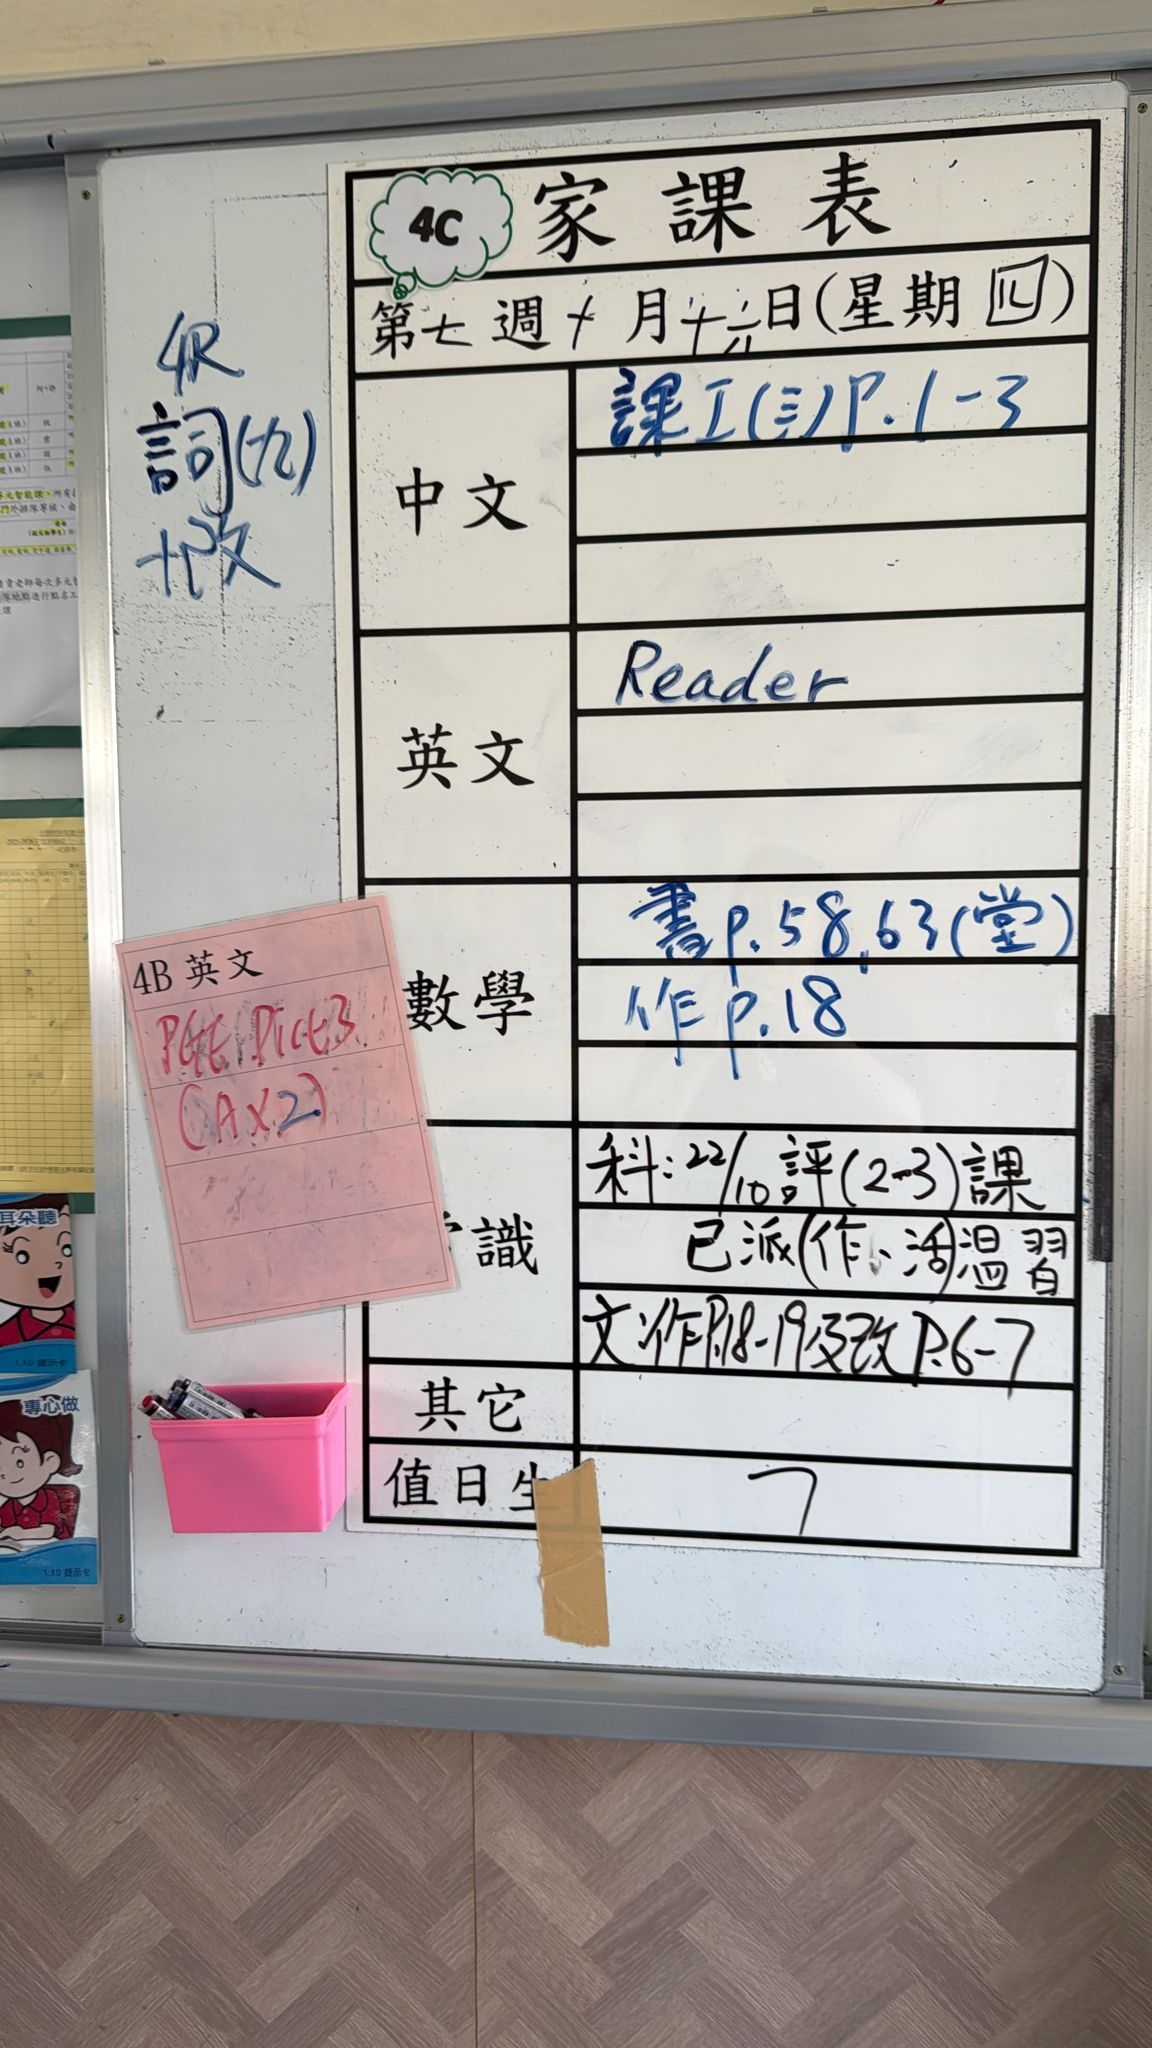 4C 家課表
第七週十月十六日(星期四)
4R
詞(九)
+改
中文
課工(三)P.1-3
英文
Reader
數學
書p.58,63(堂)
作p.18
4B 英文
(A×2)
識
科:22/10評(2-3)課
已派(作、活)溫習
文:作P.18-19及改P.6-7
其它
值日生
7
耳朵聽
1.10 提示卡
專心做
1.10 提示卡